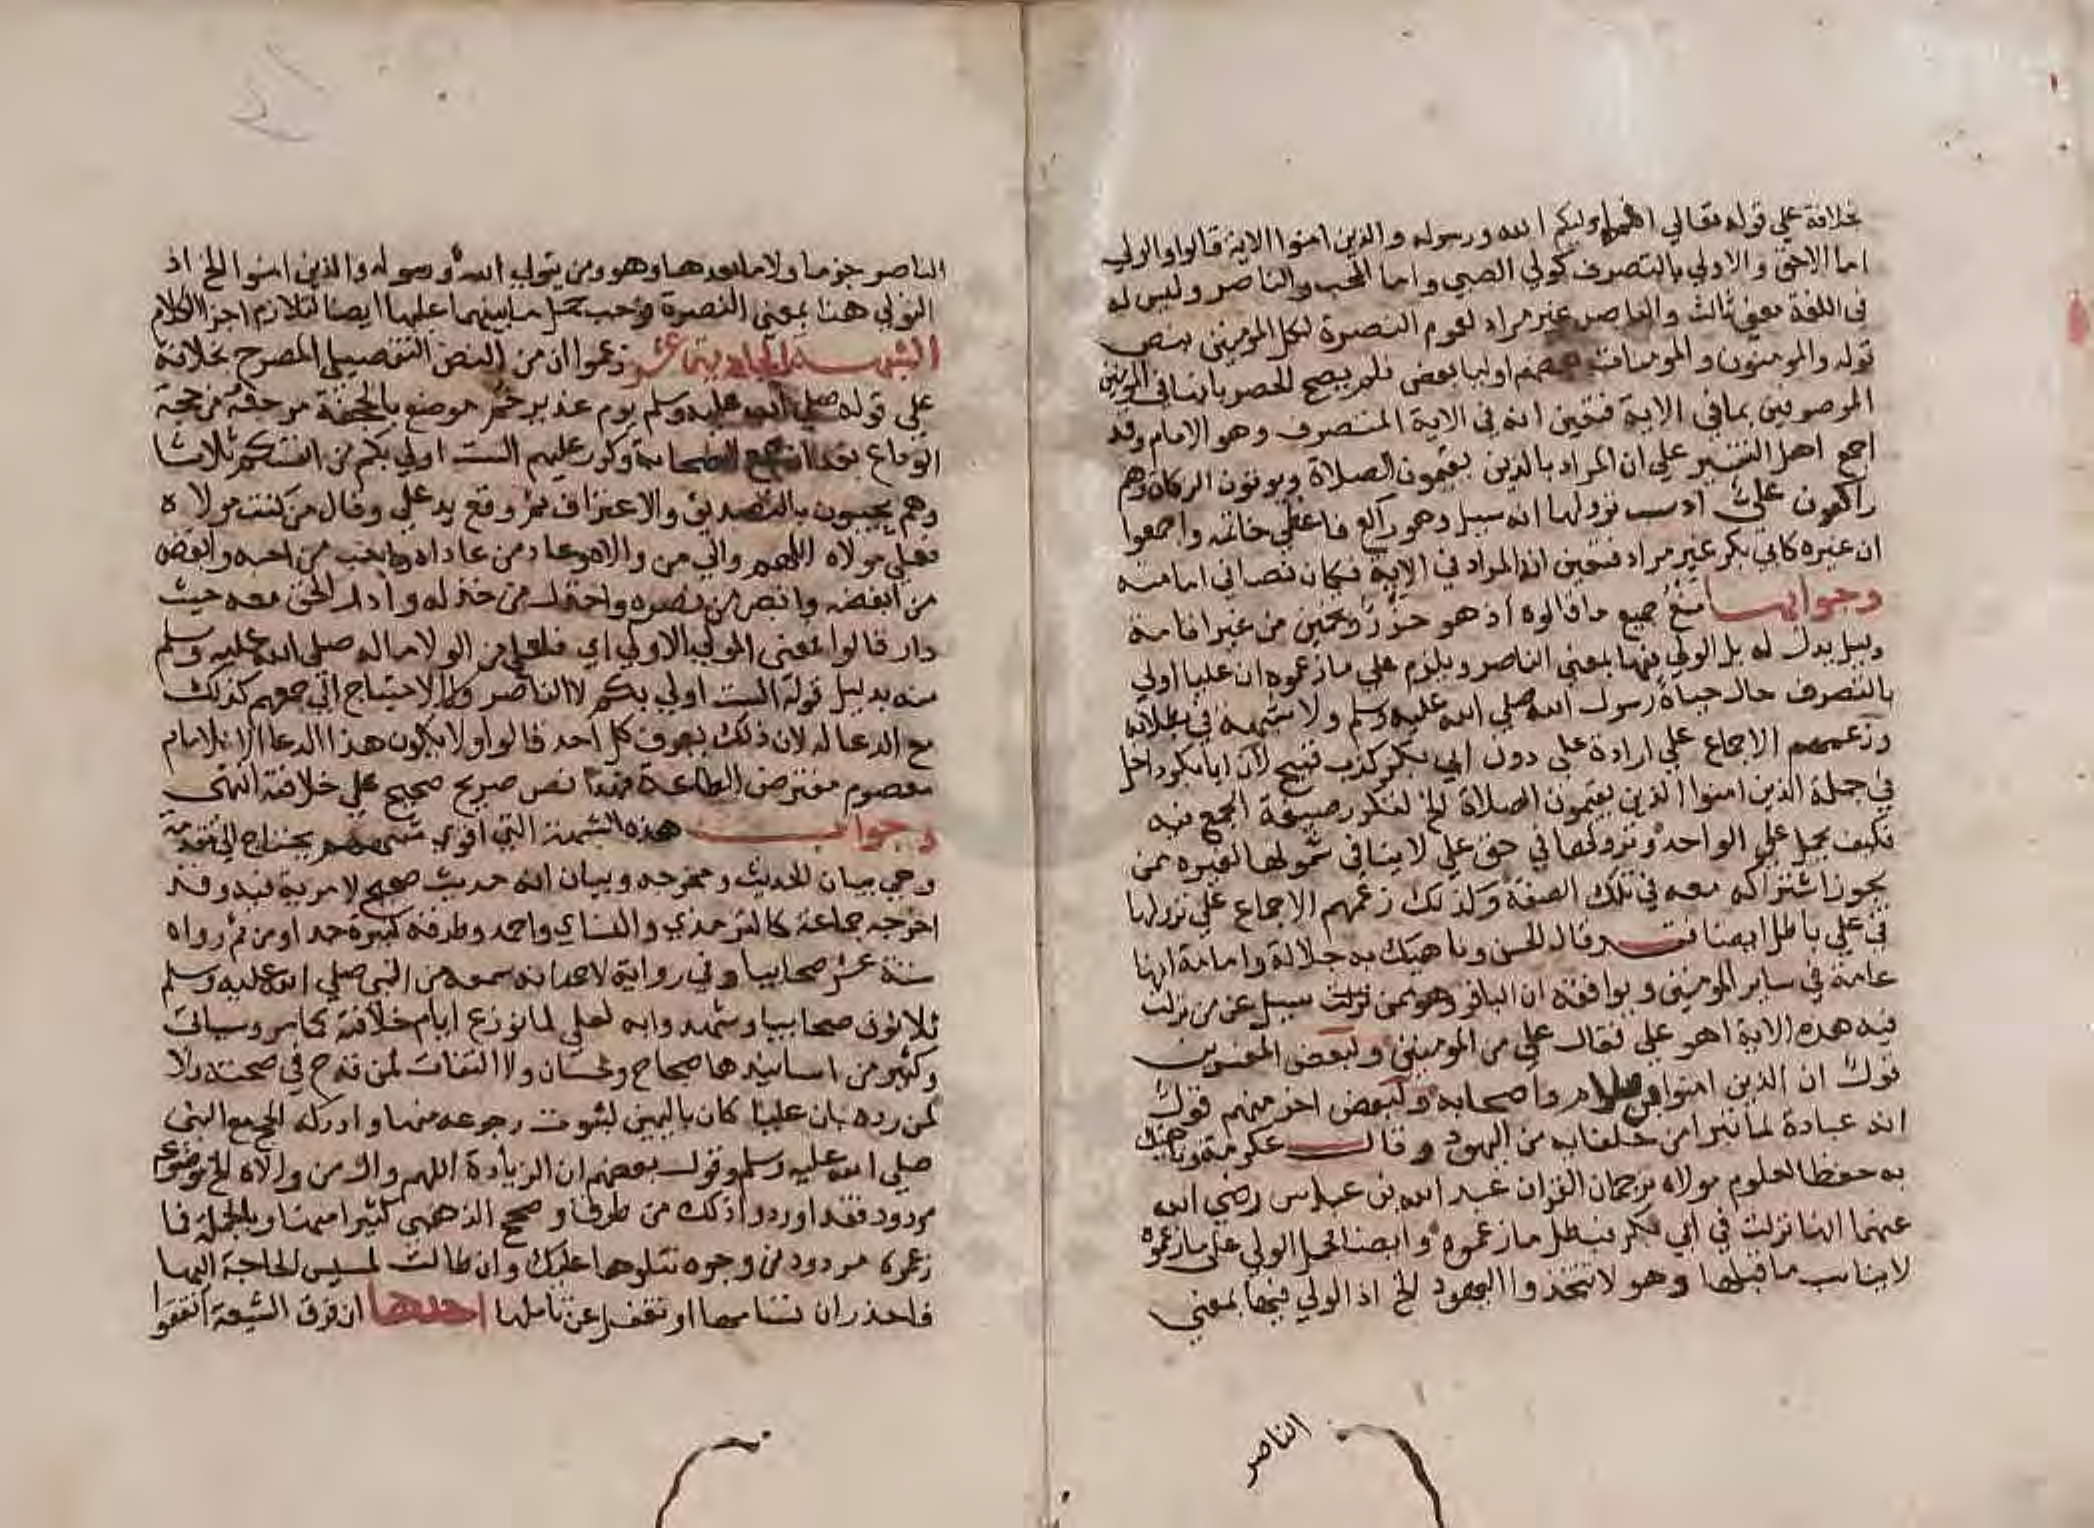 خلافة علي قوله تعالي انما وليكم الله ورسوله والذين امنوا الاية قالوا والولي
اما الاحق والاولي بالتصرف كولي الصبي واما المحب والناصر وليس له
في اللغة معني ثالث والناصر غير مراد لعموم النصرة لكل المومنين بنص
قوله والمومنون والمومنات بعضهم اوليا بعض فلم يصح الحصر بانما في المومنين
الموصوفين بما في الاية فتعين انه في الاية المتصرف وهو الامام وقد
اجمع اهل التفسير علي ان المراد بالذين يقيمون الصلاة ويوتون الزكاة وهم
راكعون علي اذ سبب نزولها انه سيل وهو راكع فاعطي خاتمه واجمعوا
ان غيره كابي بكر غير مراد فتعين انه المراد في الاية فكان نصا في امامته
وجوابها منع جميع ما قالوه اذ هو حزر وتخمين من غير اقامة
دليل يدل له بل الولي فيها بمعني الناصر ويلزم علي ما زعموه ان عليا اولي
بالتصرف حال حياة رسول الله صلي الله عليه وسلم ولا شبهة في بطلانه
وزعمهم الاجماع علي ارادة علي دون ابي بكر كذب قبيح لان ابا بكر داخل
في جملة الذين امنوا الذين يقيمون الصلاة الخ لتكرر صيغة الجمع فيه
فكيف يحمل علي الواحد ونزولها في حق علي لا ينافي شمولها لغيره ممن
يجوز اشتراكه معه في تلك الصفة وكذلك زعمهم الاجماع علي نزولها
في علي باطل ايضا فقد قال الحسن وناهيك به جلالة وامامة انها
عامة في ساير المومنين ويوافقه ان الباقر وهو ممن نزلت سيل عن من نزلت
فيه هذه الاية اهو علي فقال علي من المومنين ولبعض المفسرين
قول ان الذين امنوا ابن سلام واصحابه ولبعض اخر منهم قول
انه عبادة لما تبرا من حلفايه من اليهود وقال عكرمة وناهيك
به حفظا لعلوم مولاه ترجمان القران عبد الله بن عباس رضي الله
عنهما انها نزلت في ابي بكر فبطل ما زعموه وايضا فحمل الولي علي ما زعموه
لا يناسب ما قبلها وهو لا تتخذوا اليهود الخ اذ الولي فيها بمعني
الناصر
الناصر جزما ولا ما بعدها وهو ومن يتول الله ورسوله والذين امنوا الخ اذ
التولي هنا بمعني النصرة فوجب حمل ما بينهما عليها ايضا لتلازم اجزا الكلام
الشبهة الحادية عشر زعموا ان من النص التفصيلي المصرح بخلافة
علي قوله صلي الله عليه وسلم يوم غدير خم موضع بالجحفة مرجعه من حجة
الوداع بعد ان جمع الصحابة وكرر عليهم الست اولي بكم من انفسكم ثلاثا
وهم يجيبون بالتصديق والاعتراف ثم رفع يد علي وقال من كنت مولاه
فعلي مولاه اللهم والي من والاه وعاد من عاداه واحب من احبه وابغض
من ابغضه وانصر من نصره واخذل من خذله وادر الحق معه حيث
دار قالوا فمعني المولي الاولي اي فلعلي من الولا ما له صلي الله عليه وسلم
منه بدليل قوله الست اولي بكم لا الناصر والا لاحتياج الي جمعهم كذلك
مع الدعا له لان ذلك يعرف كل احد قالوا ولا يكون هذا الدعا الا لامام
معصوم مفترض الطاعة فهذا نص صريح صحيح علي خلافته انتهي
وجواب هذه الشبهة التي اقوي شبههم يحتاج الي مقدمة
وهي بيان الحديث ومخرجه وبيان انه حديث صحيح لا مرية فيه وقد
اخرجه جماعة كالترمذي والنساي واحمد وطرقه كثيرة جدا ومن ثم رواه
ستة عشر صحابيا وفي رواية لاحمد انه سمعه من النبي صلي الله عليه وسلم
ثلاثون صحابيا وشهدوا به لعلي لما نوزع ايام خلافته كما مر وسيات
وكثير من اسانيدها صحاح وحسان ولا التفات لمن قدح في صحته ولا
لمن رده بان عليا كان باليمن لثبوت رجوعه منها وادراكه الحج مع النبي
صلي الله عليه وسلم وقول بعضهم ان الزيادة اللهم وال من والاه الخ موضوعة
مردود فقد اورد ذلك من طرق وصحح الذهبي كثيرا منها وبالجملة فما
زعموه مردود من وجوه نتلوها عليك وان طالت لمسيس الحاجة اليها
فاحذر ان تسامها او تغفل عن تاملها احدها ان فرق الشيعة اتفقوا